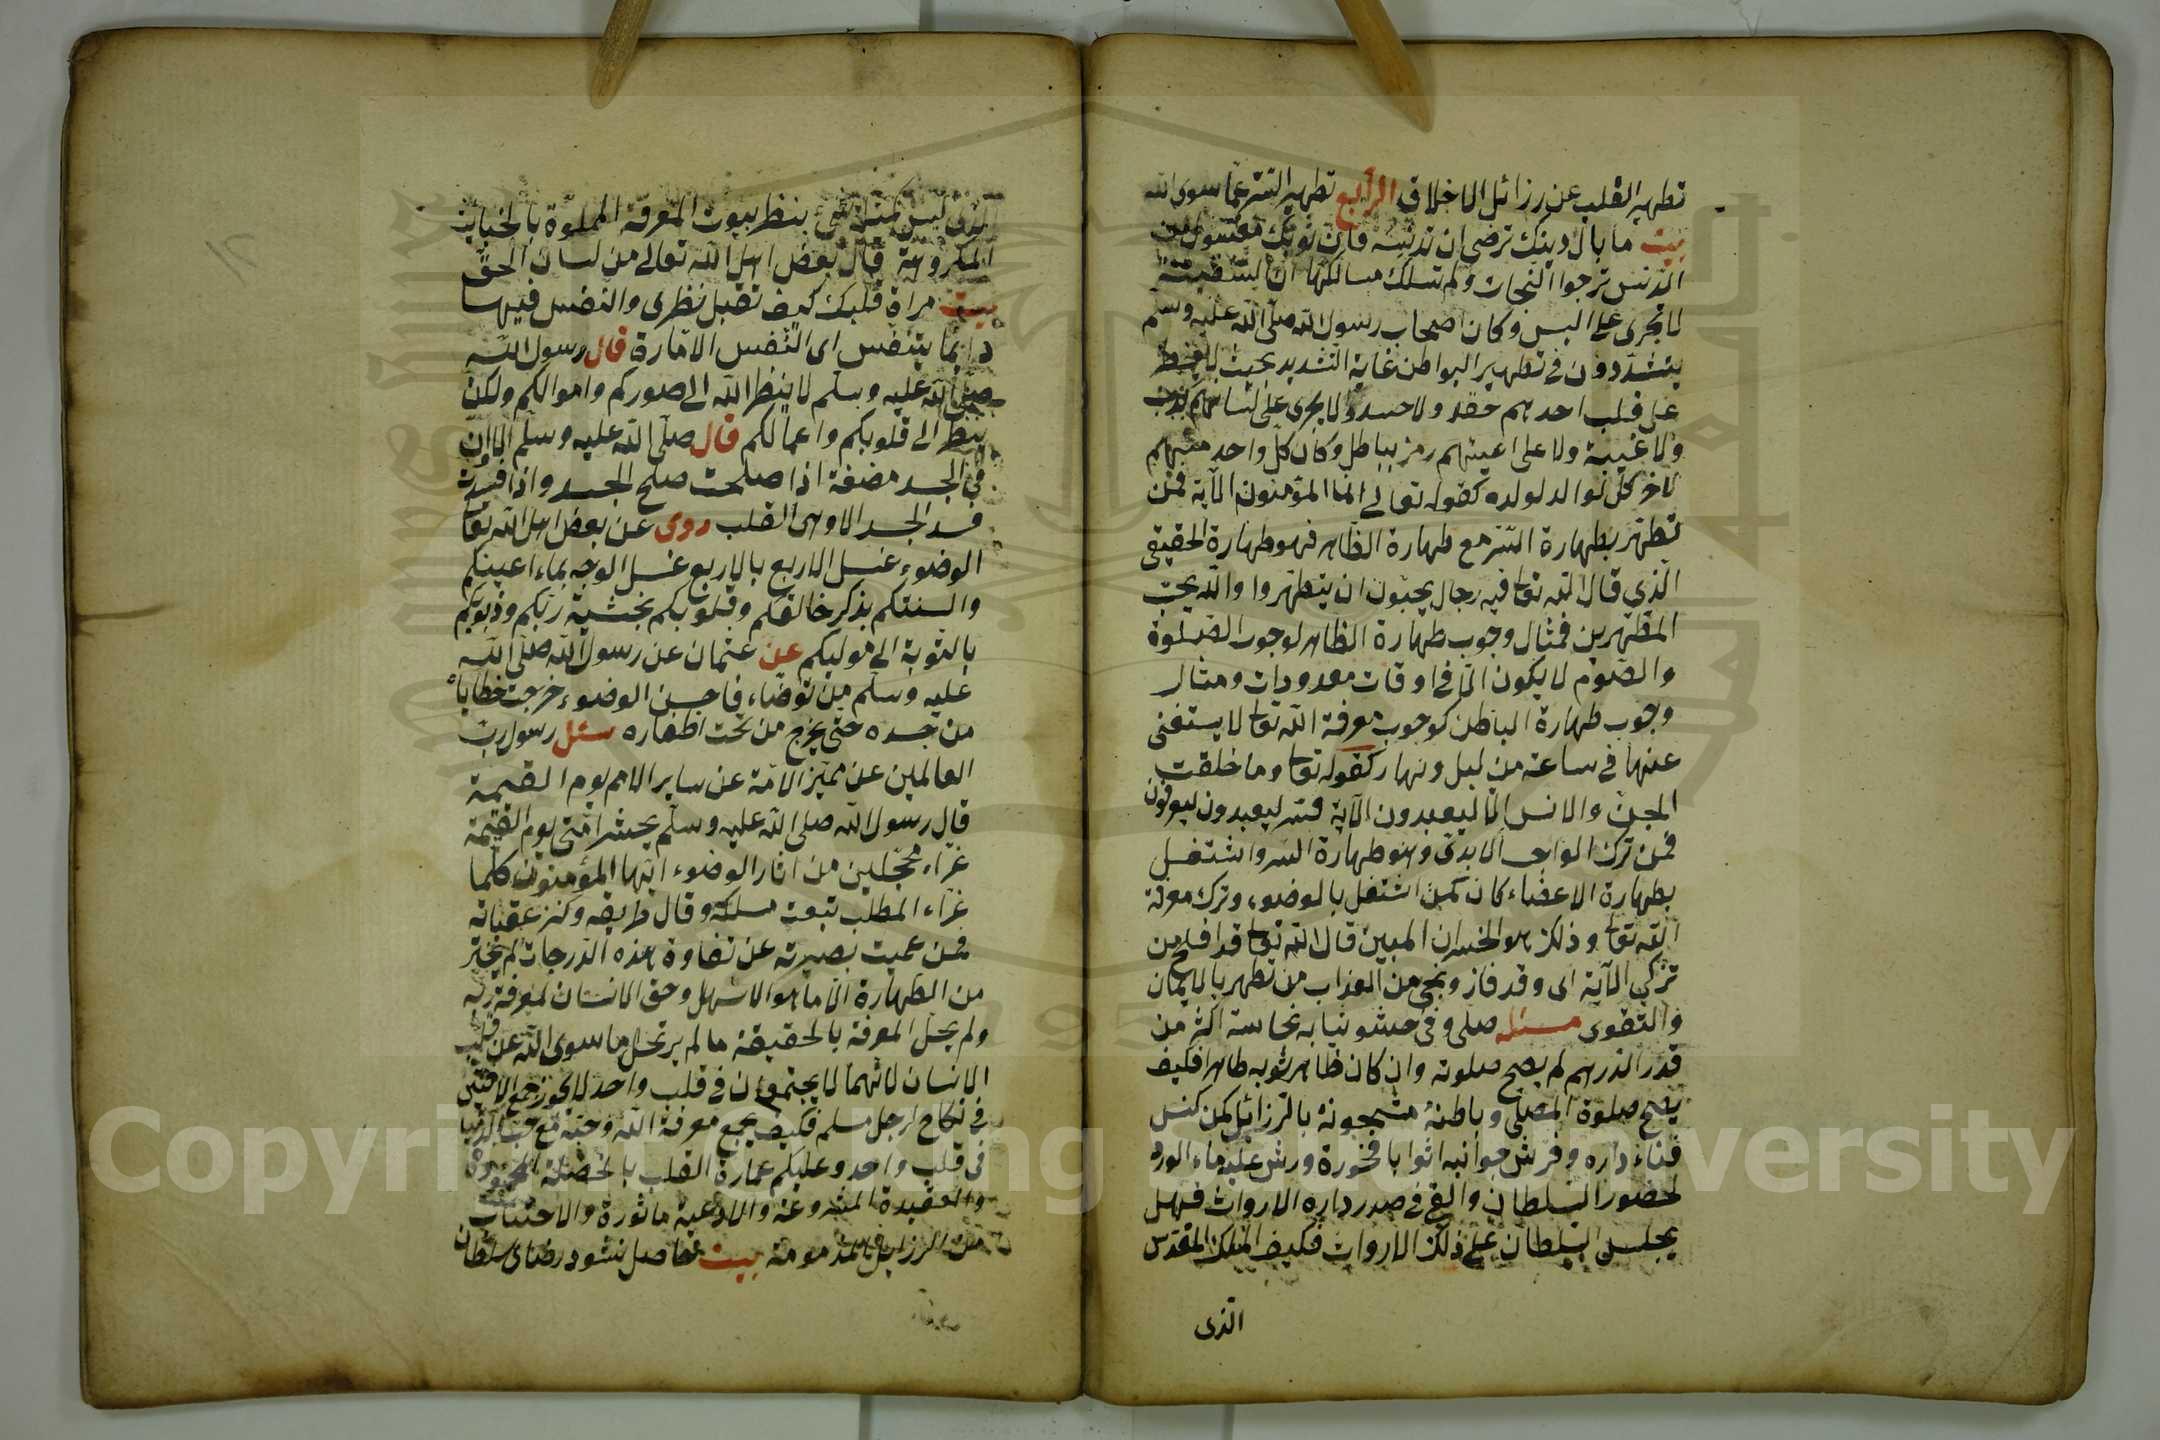 تطهير القلب عن رزائل الاخلاق الرابع تطهير السر عما سوى الله
بيت ما بال دينك ترضى ان تدنسه وان ثوبك مغسول من
الدنس ترجوا النجات ولم تسلك مسالكها ان السفينة
لا تجرى على اليبس وكان اصحاب رسول الله صلى الله عليه وسلم
يتشددون فى تطهير البواطن غاية التشديد بحيث لا
على قلب احدهم حقد ولا حسد ولا يجرى على لسانهم كذب
ولا غيبة ولا على اعينهم رمز بباطل وكان كل واحد منهم
لاخر كالوالد لولده كقوله تعالى انما المؤمنون الآية فمن
تطهر بطهارة السر مع طهارة الظاهر فهو طهارة الحقيقى
الذى قال الله تعا فيه رجال يحبون ان يتطهروا والله يحب
المطهرين فمثال وجوب طهارة الظاهر لوجوب الصلوة
والصوم لا يكون الا فى اوقات معدودات ومثال
وجوب طهارة الباطن كوجوب معرفة الله تعا لا يستغنى
عنها فى ساعة من ليل ونهار كقوله تعا وما خلقت
الجن والانس الا ليعبدون الآية فسر ليعبدون ليعرفون
فمن ترك الواجب الابدى وهو طهارة السر واشتغل
بطهارة الاعضاء كان كمن اشتغل بالوضوء وترك معرفة
الله تعا وذلك هو الخسران المبين قال الله تعا قد افلح من
تزكى الآية اى وقد فاز ونجى من العذاب من تطهر بالايمان
والتقوى مسئله صلى وفى حشو ثيابه نجاسة اكثر من
قدر الدرهم لم يصح صلوته وان كان ظاهر ثوبه طاهرا فكيف
يصح صلوة المصلى وباطنه مشحونة بالرزائل كمن كنس
فناء داره وفرش جوانبه اثوابا فخورة ورش عليه ماء الورد
لحضور السلطان والقى فى صدر داره الاروات فهل
يجلس السلطان على ذلك الاروات فكيف الملك المقدس
الذى
الذى ليس كمثله شئ ينظر بيوت المعرفة المملوة بالخبايث
المكروهة قال بعض اهل الله تعالى من لسان الحق
بيت مراة قلبك كيف تقبل نظرى والنفس فيها
دايما يتنفس اى النفس الامارة قال رسول الله
صلى الله عليه وسلم لا ينظر الله الى صوركم واموالكم ولكن
ينظر الى قلوبكم واعمالكم قال صلى الله عليه وسلم الا ان
فى الجسد مضغة اذا صلحت صلح الجسد واذا فسدت
فسد الجسد الا وهى القلب روى عن بعض اهل الله تعا
الوضوء غسل الاربع بالاربع غسل الوجه بماء اعينكم
والسنتكم بذكر خالقكم وقلوبكم بخشية ربكم وذنوبكم
بالتوبة الى موليكم عن عثمان عن رسول الله صلى الله
عليه وسلم من توضاء فاحسن الوضوء خرجت خطاياه
من جسده حتى يخرج من تحت اظفاره سئل رسول رب
العالمين عن مميز الامة عن ساير الامم يوم القيمة
قال رسول الله صلى الله عليه وسلم يحشر امتى يوم القيمة
غراء محجلين من اثار الوضوء ايها المؤمنون كلما
غراء المطلب تبعت مسلكه وقال طريقه وكنز عقباته
فمن عميت بصيرته عن تفاوة هذه الدرجات لم يختر
من الطهارة الا ما هو الاسهل وحق الانسان لمعرفة ربه
ولم يحل المعرفة بالحقيقة ما لم يرتحل ما سوى الله عن قلب
الانسان لانهما لا يجتمعان فى قلب واحد لا يجوز جمع الاختين
فى نكاح رجل مسلم فكيف يجمع معرفة الله وحبه مع حب الدنيا
فى قلب واحد وعليكم عمارة القلب بالخصلة المحمودة
والعقيدة المشروعة والادعية ماثورة والاجتناب
من الرزايل المذمومة بيت حاصل نشود رضاى سلطان